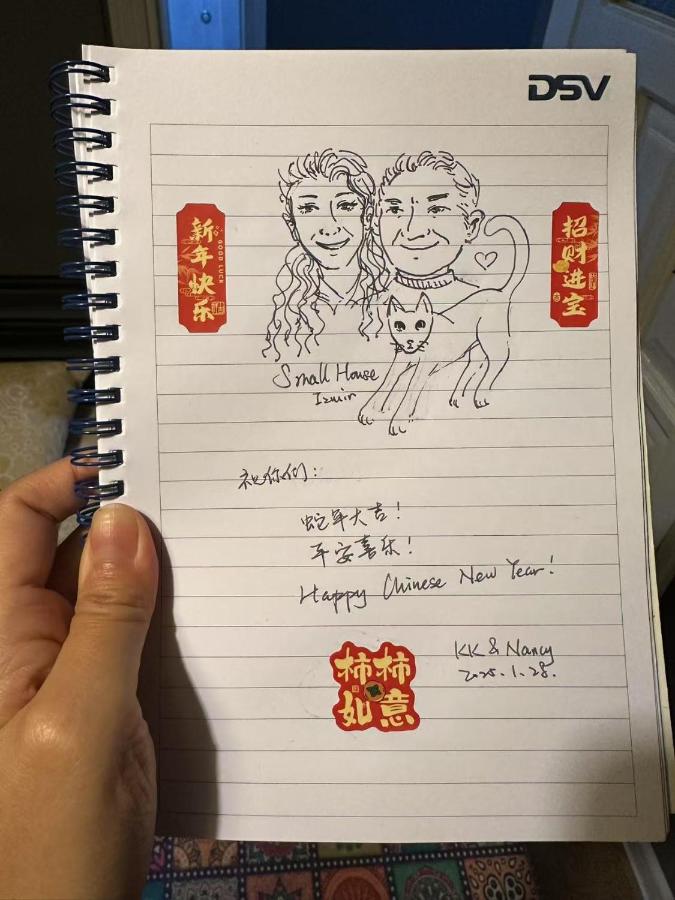 DSV
新年快乐
GOOD LUCK
招财进宝
Small House
Izmir
祝你们：
蛇年大吉！
平安喜乐！
Happy Chinese New Year!
KK & Nancy
2025.1.28.
柿柿
如意